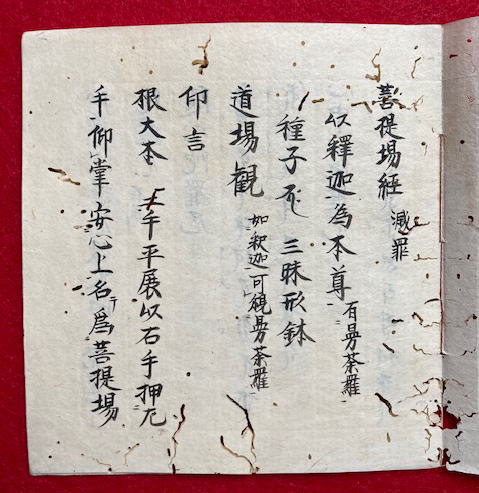 菩提場經 滅罪
以釋迦為本尊 有曼荼羅
種子 三昧形鉢
道場觀 如釈迦可観曼荼羅
印言
根大本 手平展以右手押左
手仰掌安心上名為菩提場